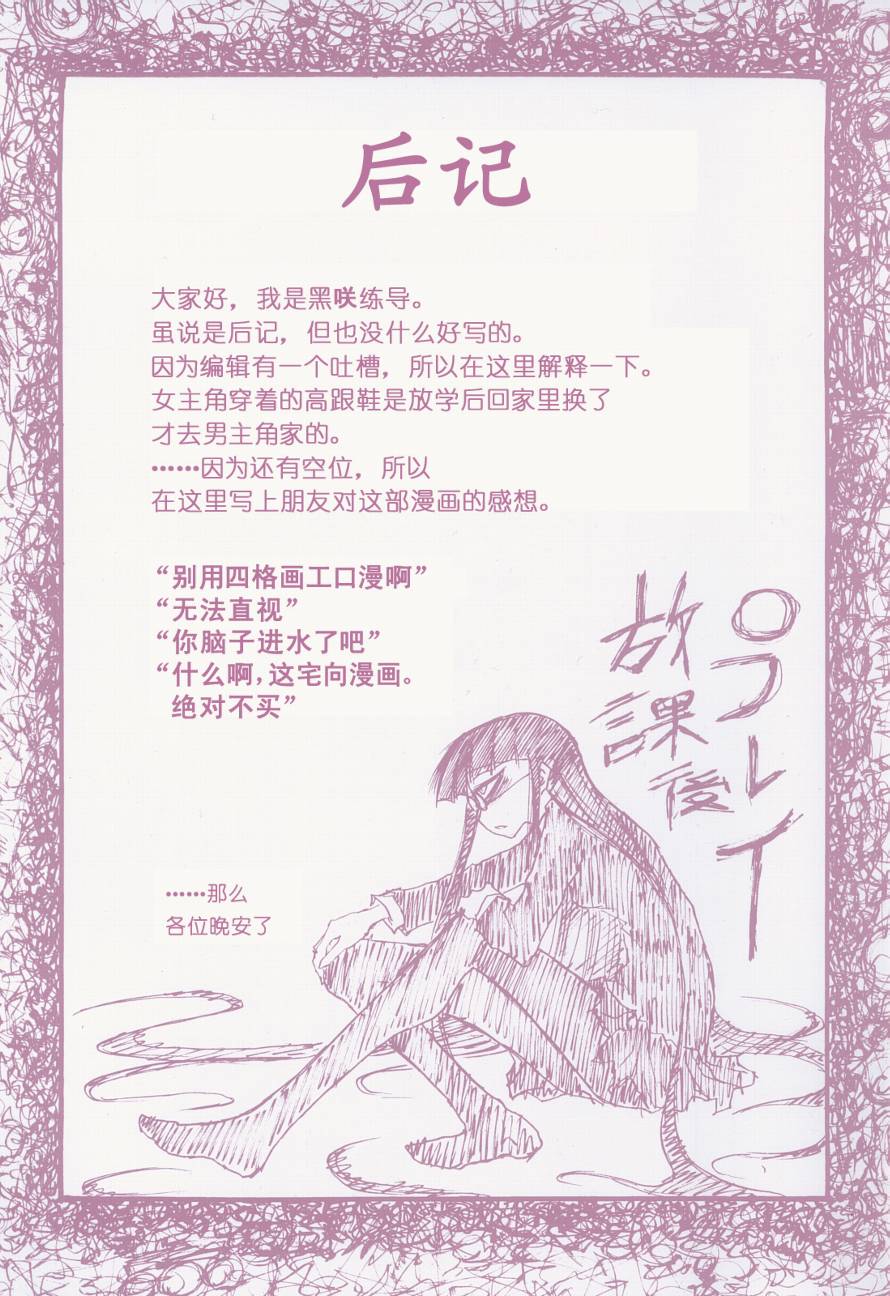 后记
大家好，我是黑咲练导。
虽说是后记，但也没什么好写的。
因为编辑有一个吐槽，所以在这里解释一下。
女主角穿着的高跟鞋是放学后回家里换了
才去男主角家的。
……因为还有空位，所以
在这里写上朋友对这部漫画的感想。
“别用四格画工口漫啊”
“无法直视”
“你脑子进水了吧”
“什么啊，这宅向漫画。
绝对不买”
放課後
プレイ
……那么
各位晚安了